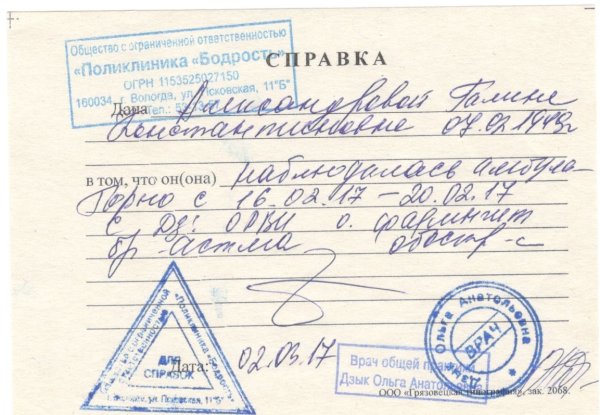 Общество с ограниченной ответственностью
«Поликлиника «Бодрость»
ОГРН 1153525027150
160034, г. Вологда, ул. Псковская, 11"Б"
Тел.:
СПРАВКА
Дана Александровой Галине
Константиновне 07.02.1949г
в том, что он(она) наблюдалась амбула-
торно с 16.02.17 – 20.02.17
с Дз: ОРВИ о. фарингит
бр. астма обостр-е
«Поликлиника «Бодрость»
ДЛЯ
СПРАВОК
г. Вологда, ул. Псковская, 11"Б"
Дата: 02.03.17
Ольга Анатольевна
ВРАЧ
Врач общей практики
Дзык Ольга Анатольевна
ООО «Грязовецкая типография», зак. 2068.